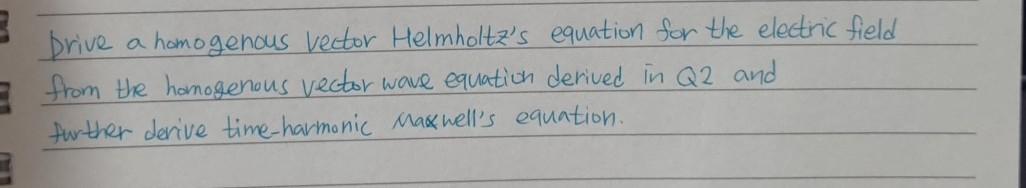 Drive a homogenous vector Helmholtz's equation for the electric field
from the homogenous vector wave equation derived in Q2 and
further derive time-harmonic Maxwell's equation.